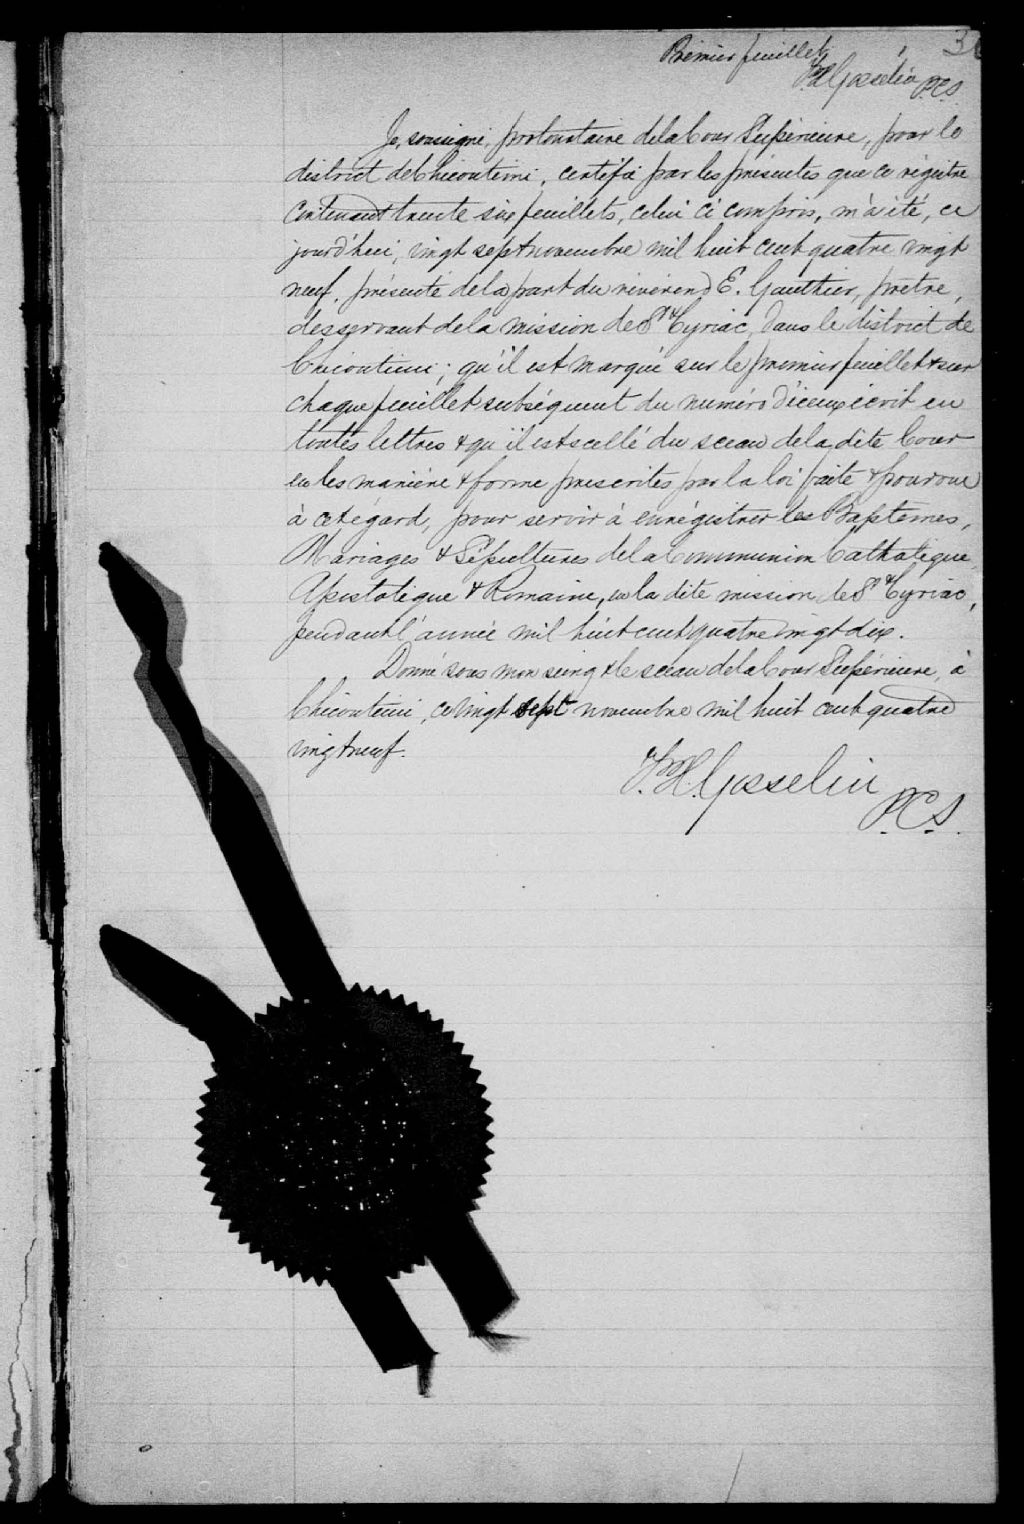 Premier feuillet
F.H. Gosselin P.C.S.
Je, soussigné, protonotaire de la Cour Supérieure, pour le
district de Chicoutimi, certifie par les présentes que ce régistre
contenant trente six feuillets, celui ci compris, m'a été, ce
jourd'hui, vingt sept novembre mil huit cent quatre vingt
neuf, présenté de la part du révérend E. Gauthier, prêtre,
desservant de la mission de St Cyriac, dans le district de
Chicoutimi; qu'il est marqué sur le premier feuillet & sur
chaque feuillet subséquent du numéro d'iceux écrit en
toutes lettres & qu'il est scellé du sceau de la dite Cour
en les manière & forme prescrites par la loi faite & pourvue
à cet égard, pour servir à enrégistrer les Baptêmes,
Mariages & Sépultures de la Communion Catholique,
Apostolique & Romaine, en la dite mission de St Cyriac,
pendant l'année mil huit cent quatre vingt dix.
Donné sous mon seing & le sceau de la Cour Supérieure, à
Chicoutimi, ce vingt sept novembre mil huit cent quatre
vingt neuf.
F.H. Gosselin
P.C.S.